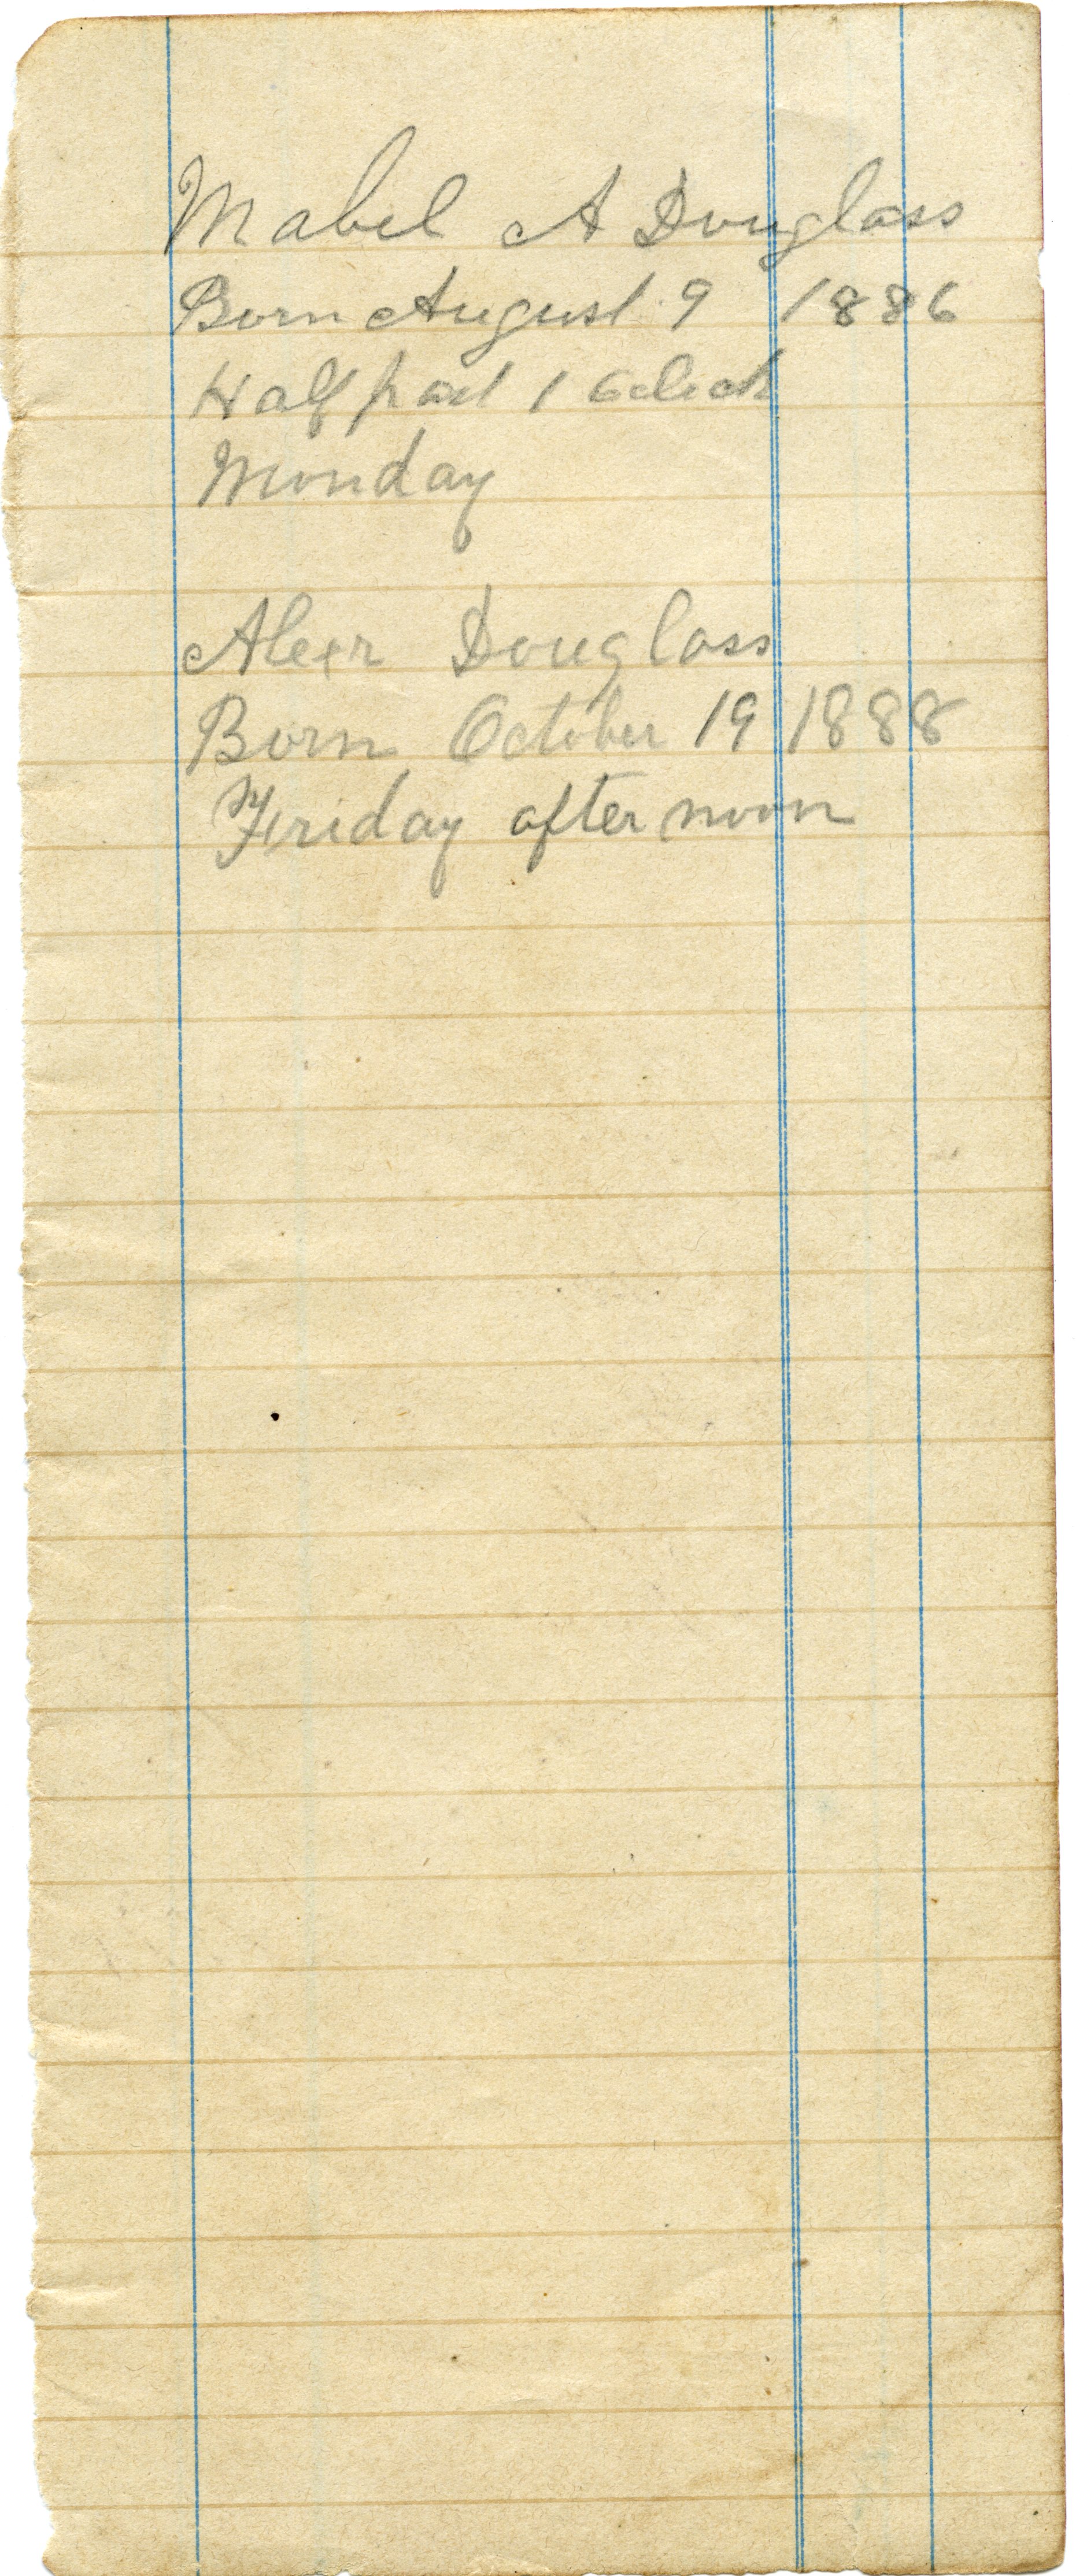 Mabel A Douglass
Born August 9 1886
Half past 1 oclock
Monday
Alexr Douglass
Born October 19 1888
Friday afternoon